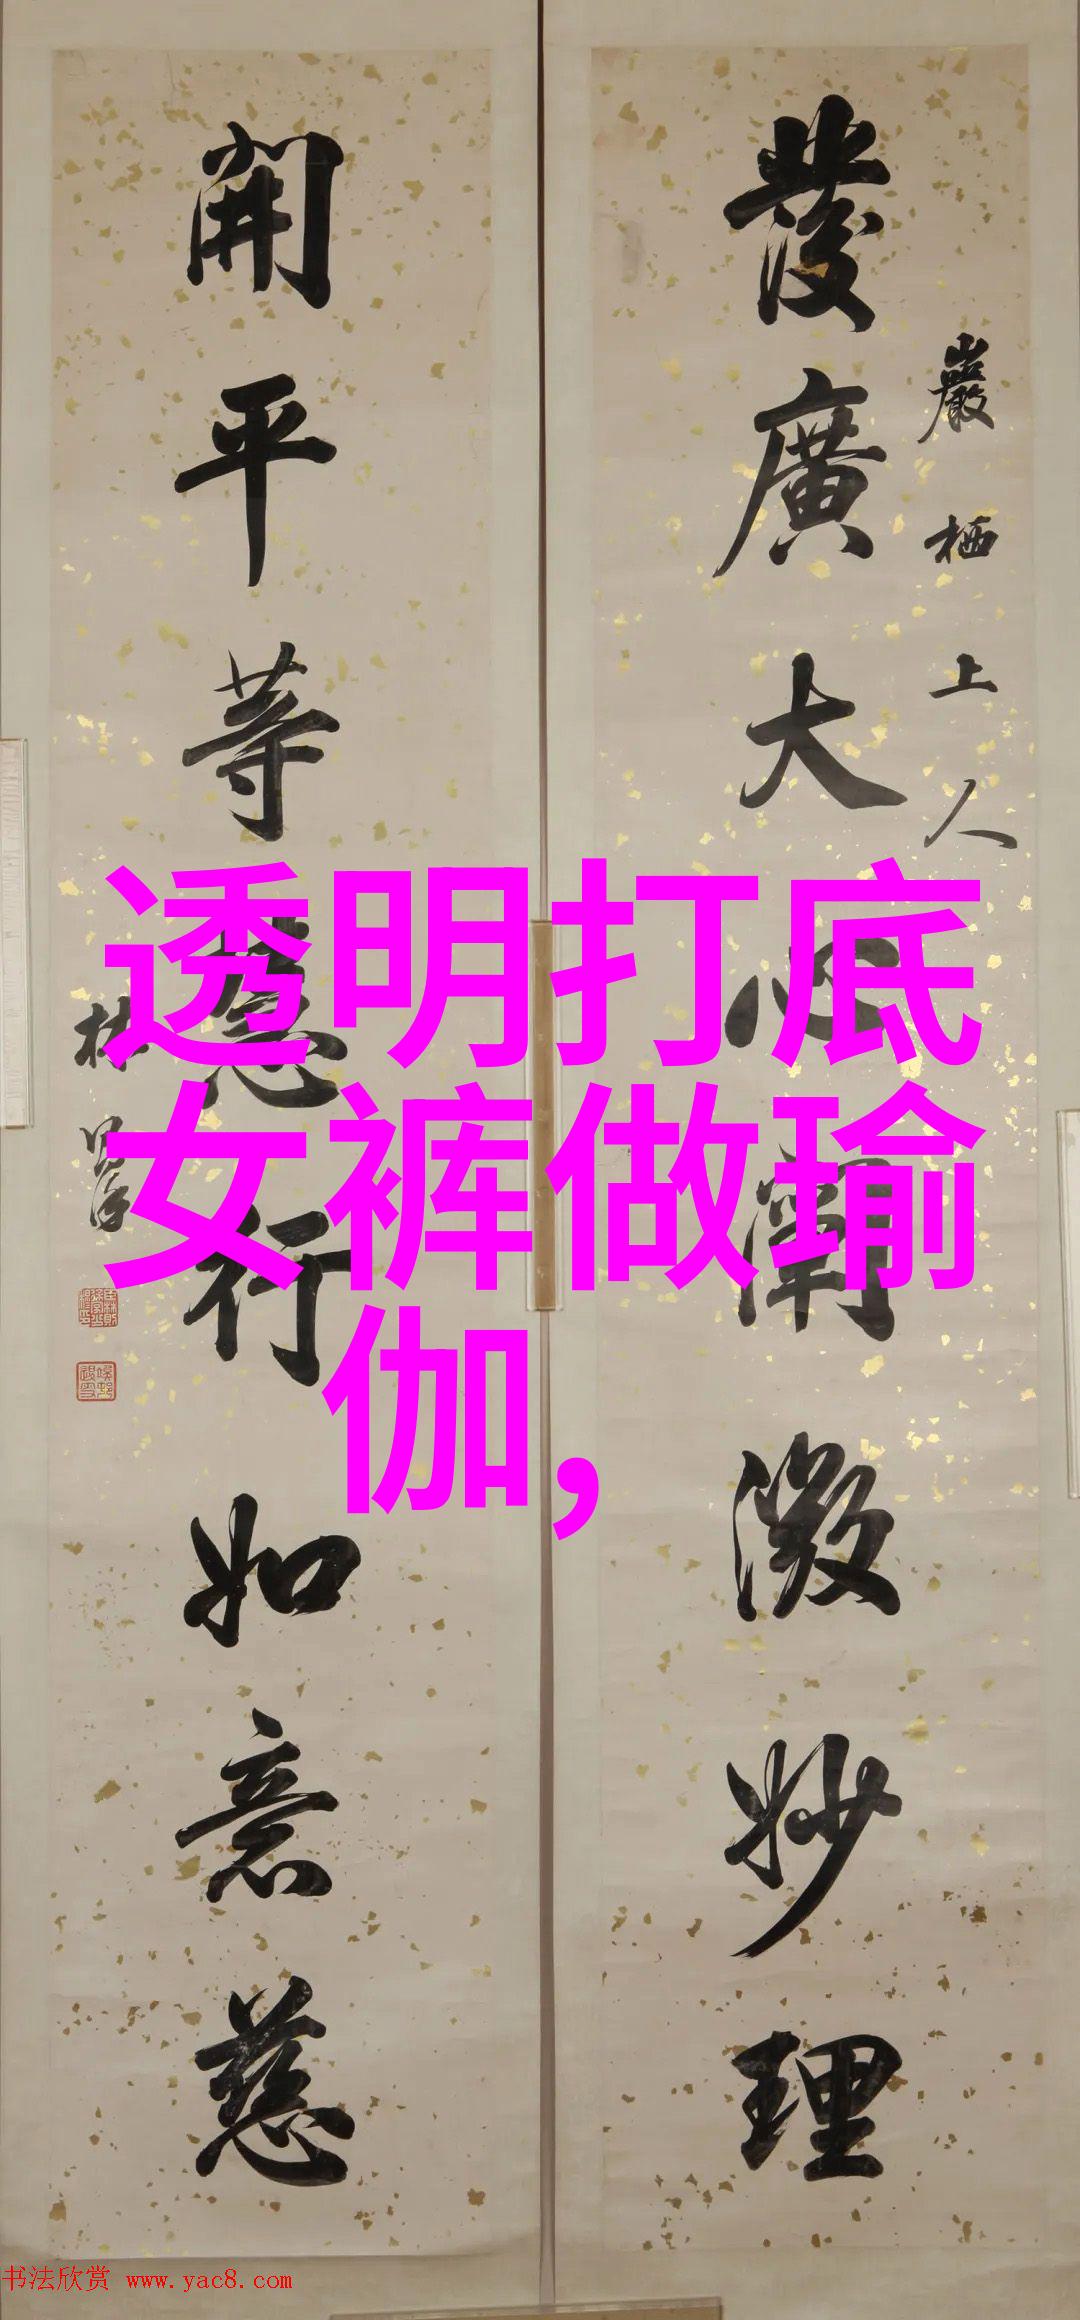 發廣大心闡微妙理
巖栖上人
開平等慧行如意慈
林
透明打底
女裤做瑜
伽,
书法欣赏 www.yac8.com